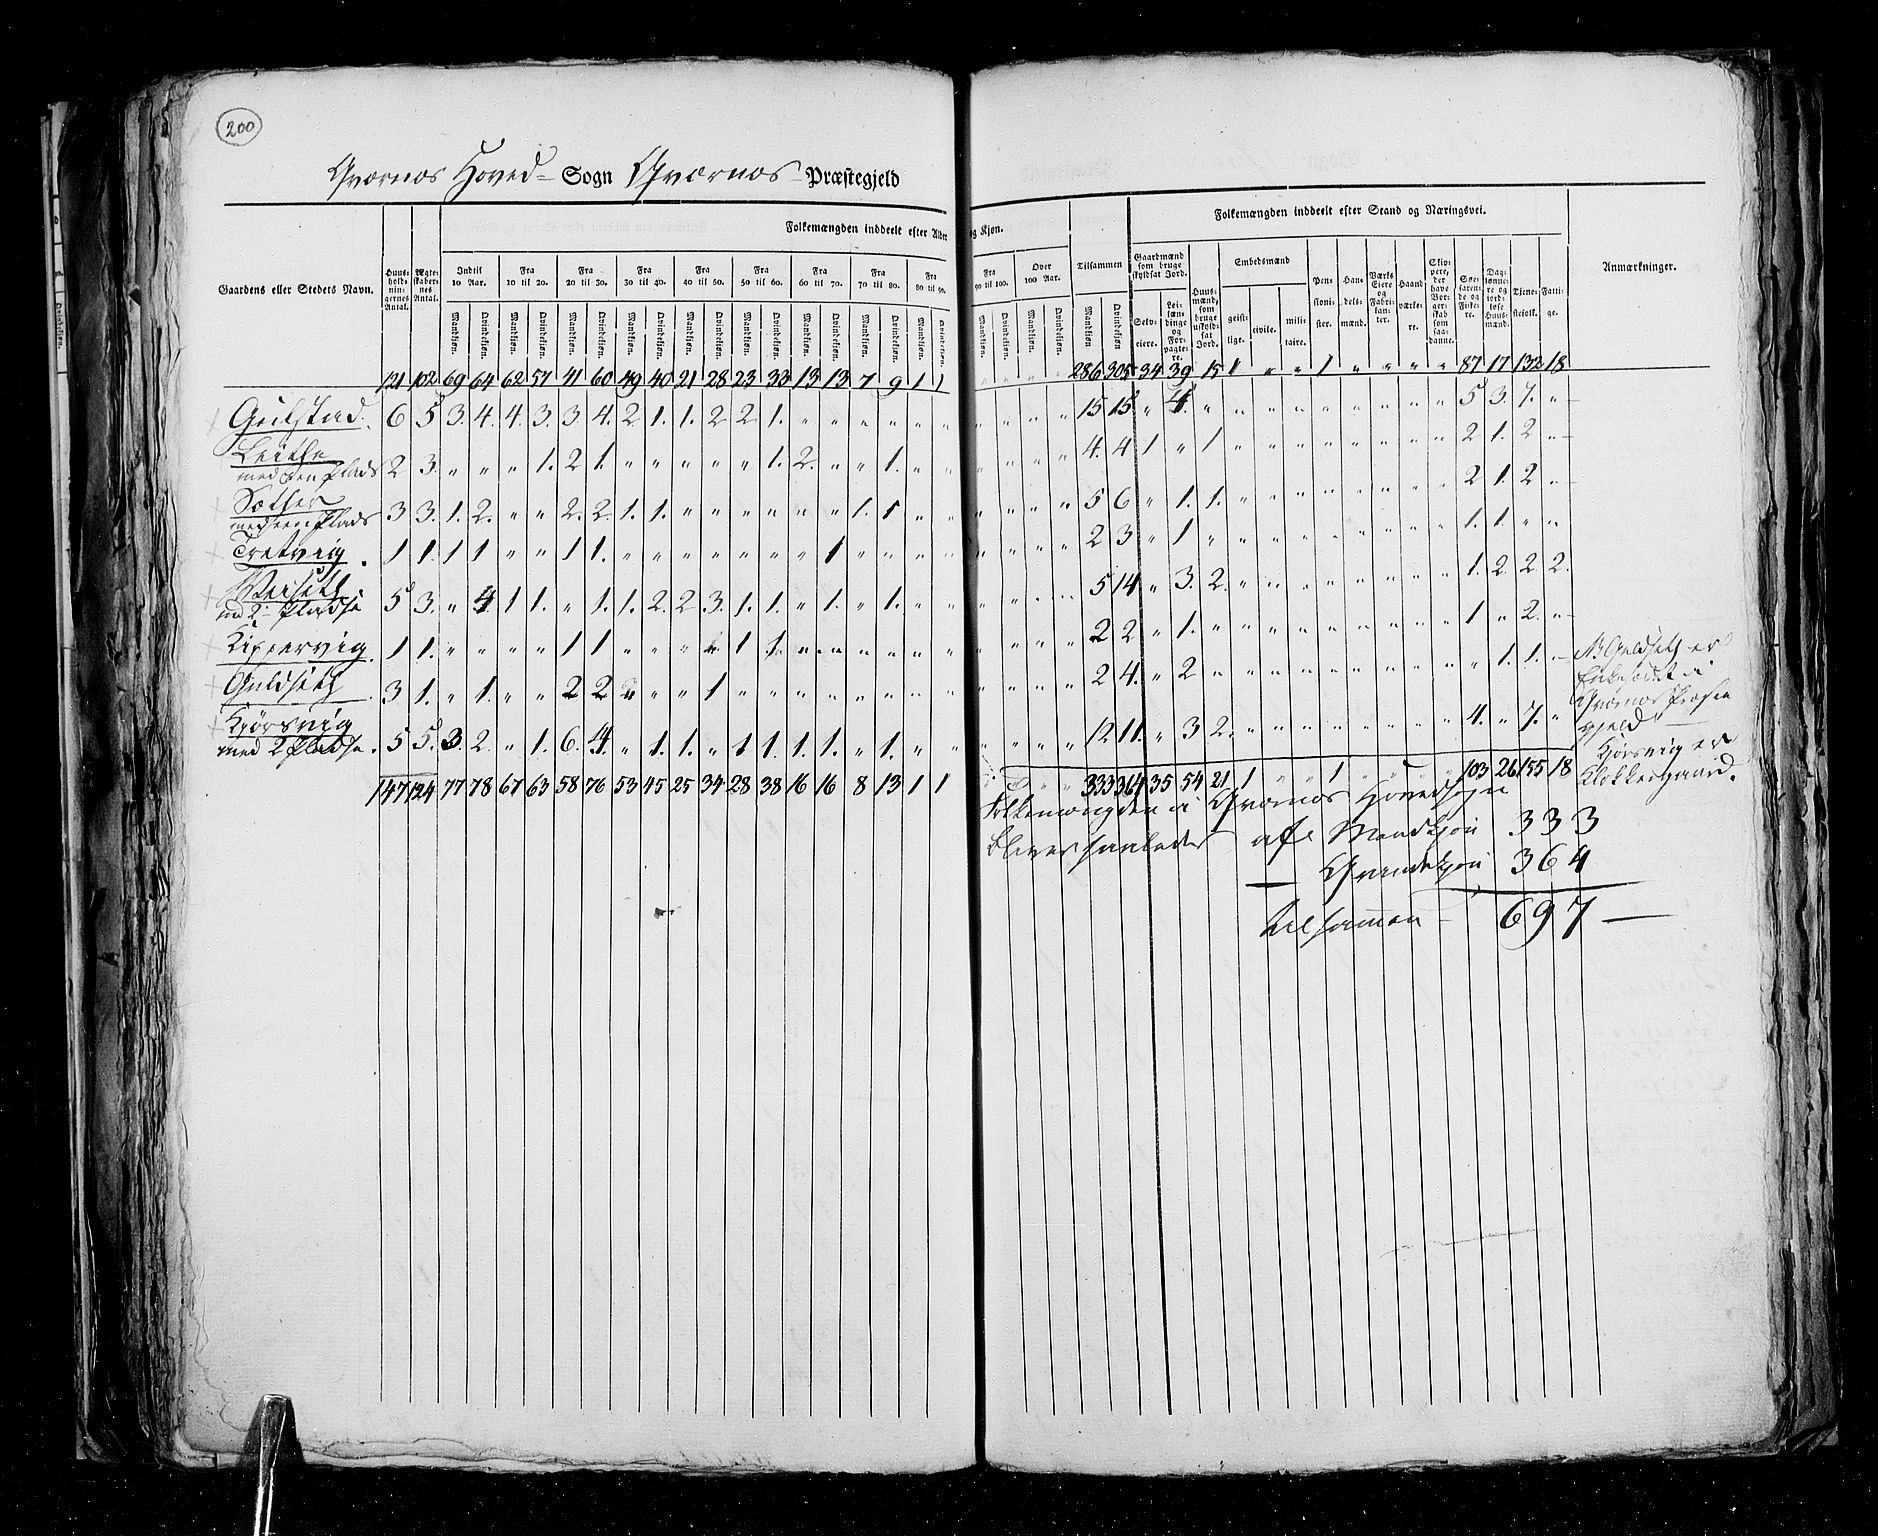 200
Qværnæs Hoved= Sogn Qværnæs Præstegjeld
Folkemængden inddeelt efter Alder og Kjøn.
Folkemængden inddeelt efter Stand og Næringsvei.
Gaardens eller Steders Navn.
Huus-holdningernes Antal.
Ægteskabernes Antal.
Indtil 10 Aar.
Fra 10 til 20.
Fra 20 til 30.
Fra 30 til 40.
Fra 40 til 50.
Fra 50 til 60.
Fra 60 til 70.
Fra 70 til 80.
Fra 80 til 90.
Fra 90 til 100.
Over 100 Aar.
Tilsammen
Mandkjøn. Qvindekjøn.
Gaardmænd som bruge skyldsat Jord.
Selv-eiere.
Leilændinge og Forpagtere.
Huusmænd, som bruge uskyldsat Jord.
Embedsmænd
geistlige. civile. militaire.
Pensionister.
Handelsmænd.
Værks Eiere og Fabrikanter.
Haandværkere.
Skippere, der have Borgerskab som saadanne.
Søefarende og Fiskere.
Daglønnere og jordløse Huusmænd.
Tjenestefolk.
Fattige.
Anmærkninger.
121 102 69 64 62 57 41 60 49 40 21 28 23 33 13 13 7 9 1 1 " " " " 286 305 34 39 15 1 " " 1 " " " " 87 17 132 18
Gulstad. 6 5 3. 4. 4. 3. 3. 4. 2. 1. 1. 2 2. 1. " " " " " " " " " " 15 15 " 4. " " " " " " " " " 5 3. 7. "
Leithe
med een Plads 2 3. " " " 1. 2 1. " " " " " 1. 2. " " 1. " " " " " " 4. 4 1 " 1 " " " " " " " " 2 1. 2 "
Sæther
med een Plads 3 3. 1. 2. " " 2. 2. 1. 1. " " " " " " 1. 1 " " " " " " 5 6 " 1. 1. " " " " " " " " 2 1. 2 "
Tretvig. 1 1. 1 1 " " 1 1. " " " " " " " 1 " " " " " " " " 2 3 " 1 " " " " " " " " " 1. 1. " "
Weiseth
md 2 Pladse 5 3. " 4 1 1. " 1. 1. 2. 2 3. 1. 1. " 1. " 1. " " " " " " 5 14 " 3. 2. " " " " " " " " 1. 2. 2 2.
Kippervig. 1 1. " " " " 1 1 " " " " 1 1. " " " " " " " " " " 2 2 " 1. " " " " " " " " " 1 " 2. "
Guldseth. 3 1. " 1. " " 2 2 " " " 1 " " " " " " " " " " " " 2 4. " 2 " " " " " " " " " " 1. 1. "
Kjørsvig
med 2 Pladse. 5 5. 3 2. " 1. 6. 4. " 1. 1. " 1 1. 1. 1. " 1. " " " " " " 12 11. " 3 2. " " " " " " " " 4. " 7. "
147 124 77 78 67 63 58 76 53 45 25 34 28 38 16 16 8 13 1 1 " " " " 333 364 35 54 21 1 " " 1 " " " " 103 26 155 18
NB Guldseth er
Enkesædet i
Qværnæs Præste
gjeld
Kjørsvig er
Klokkergaard.
Folkemængden i Qværnæs Hovedsogn
bliver saaledes af Mandkjøn 333
— Qvindekjøn 364
tilsammen 697